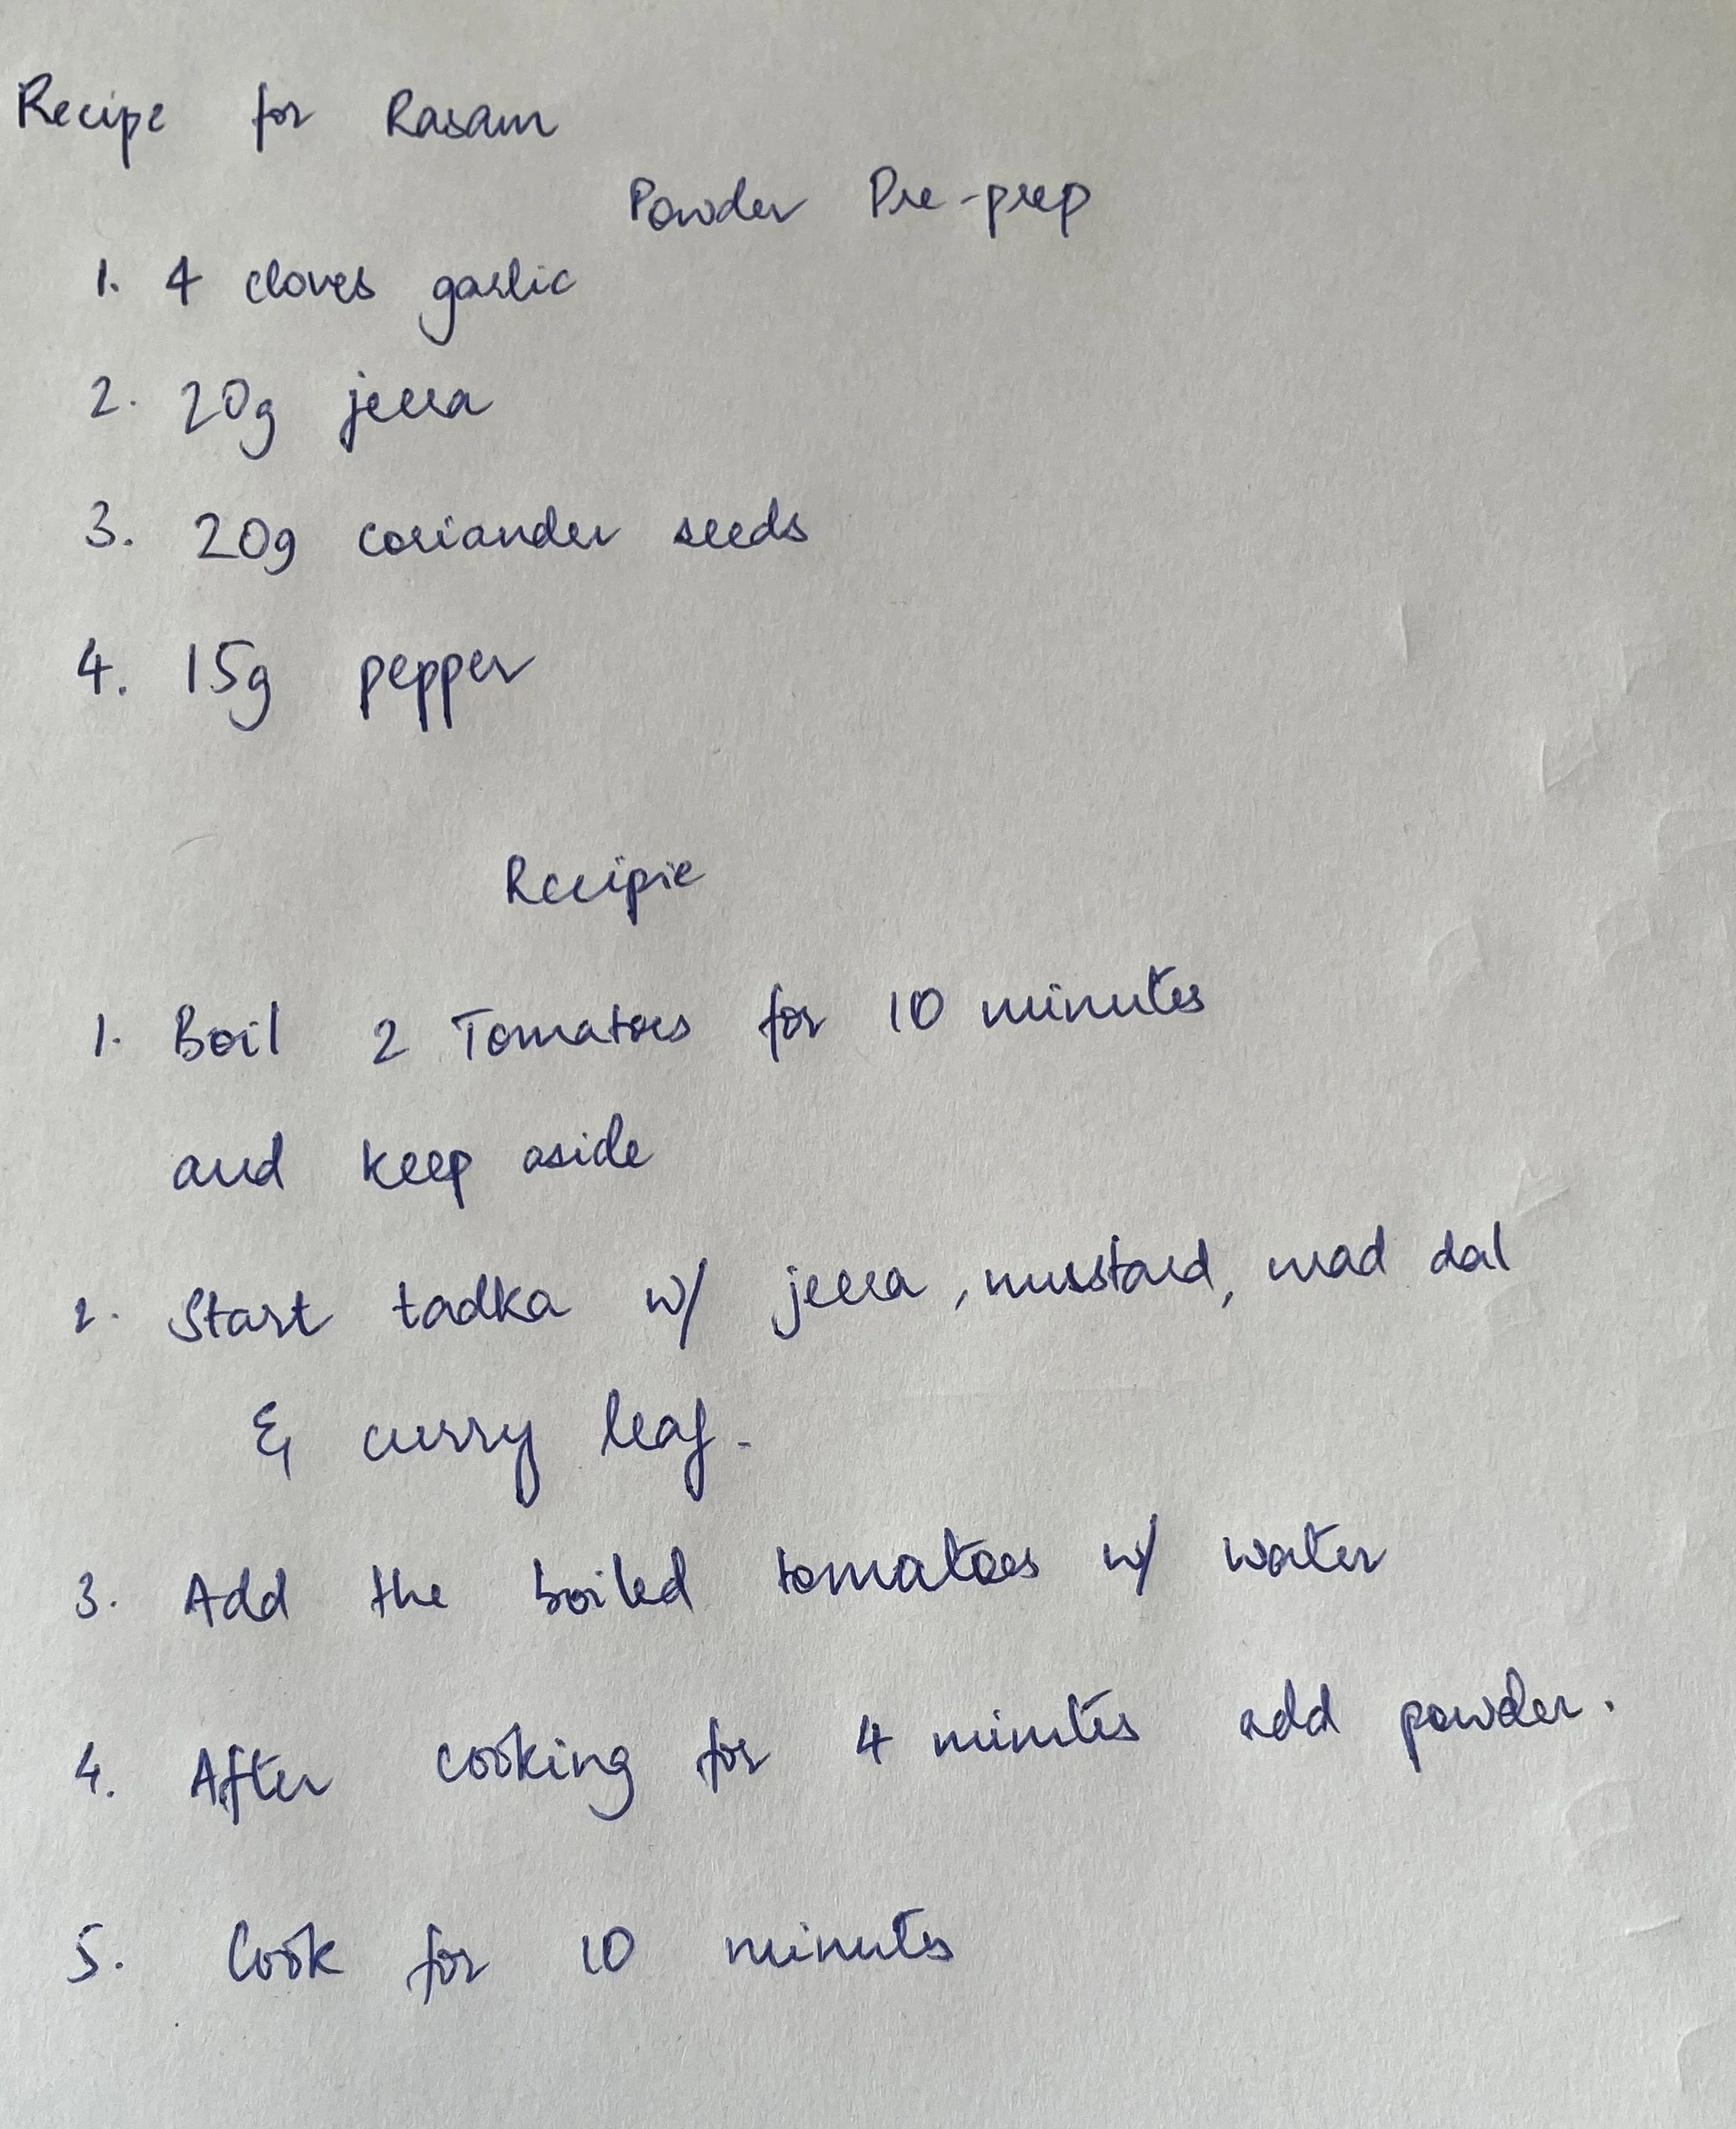 Recipe for Rasam
Powder Pre-prep
1. 4 cloves garlic
2. 20g jeera
3. 20g coriander seeds
4. 15g pepper
Recipie
1. Boil 2 Tomatoes for 10 minutes
and keep aside
2. Start tadka w/ jeera, mustard, urad dal
& curry leaf.
3. Add the boiled tomatoes w/ water
4. After cooking for 4 minutes add powder.
5. Cook for 10 minutes